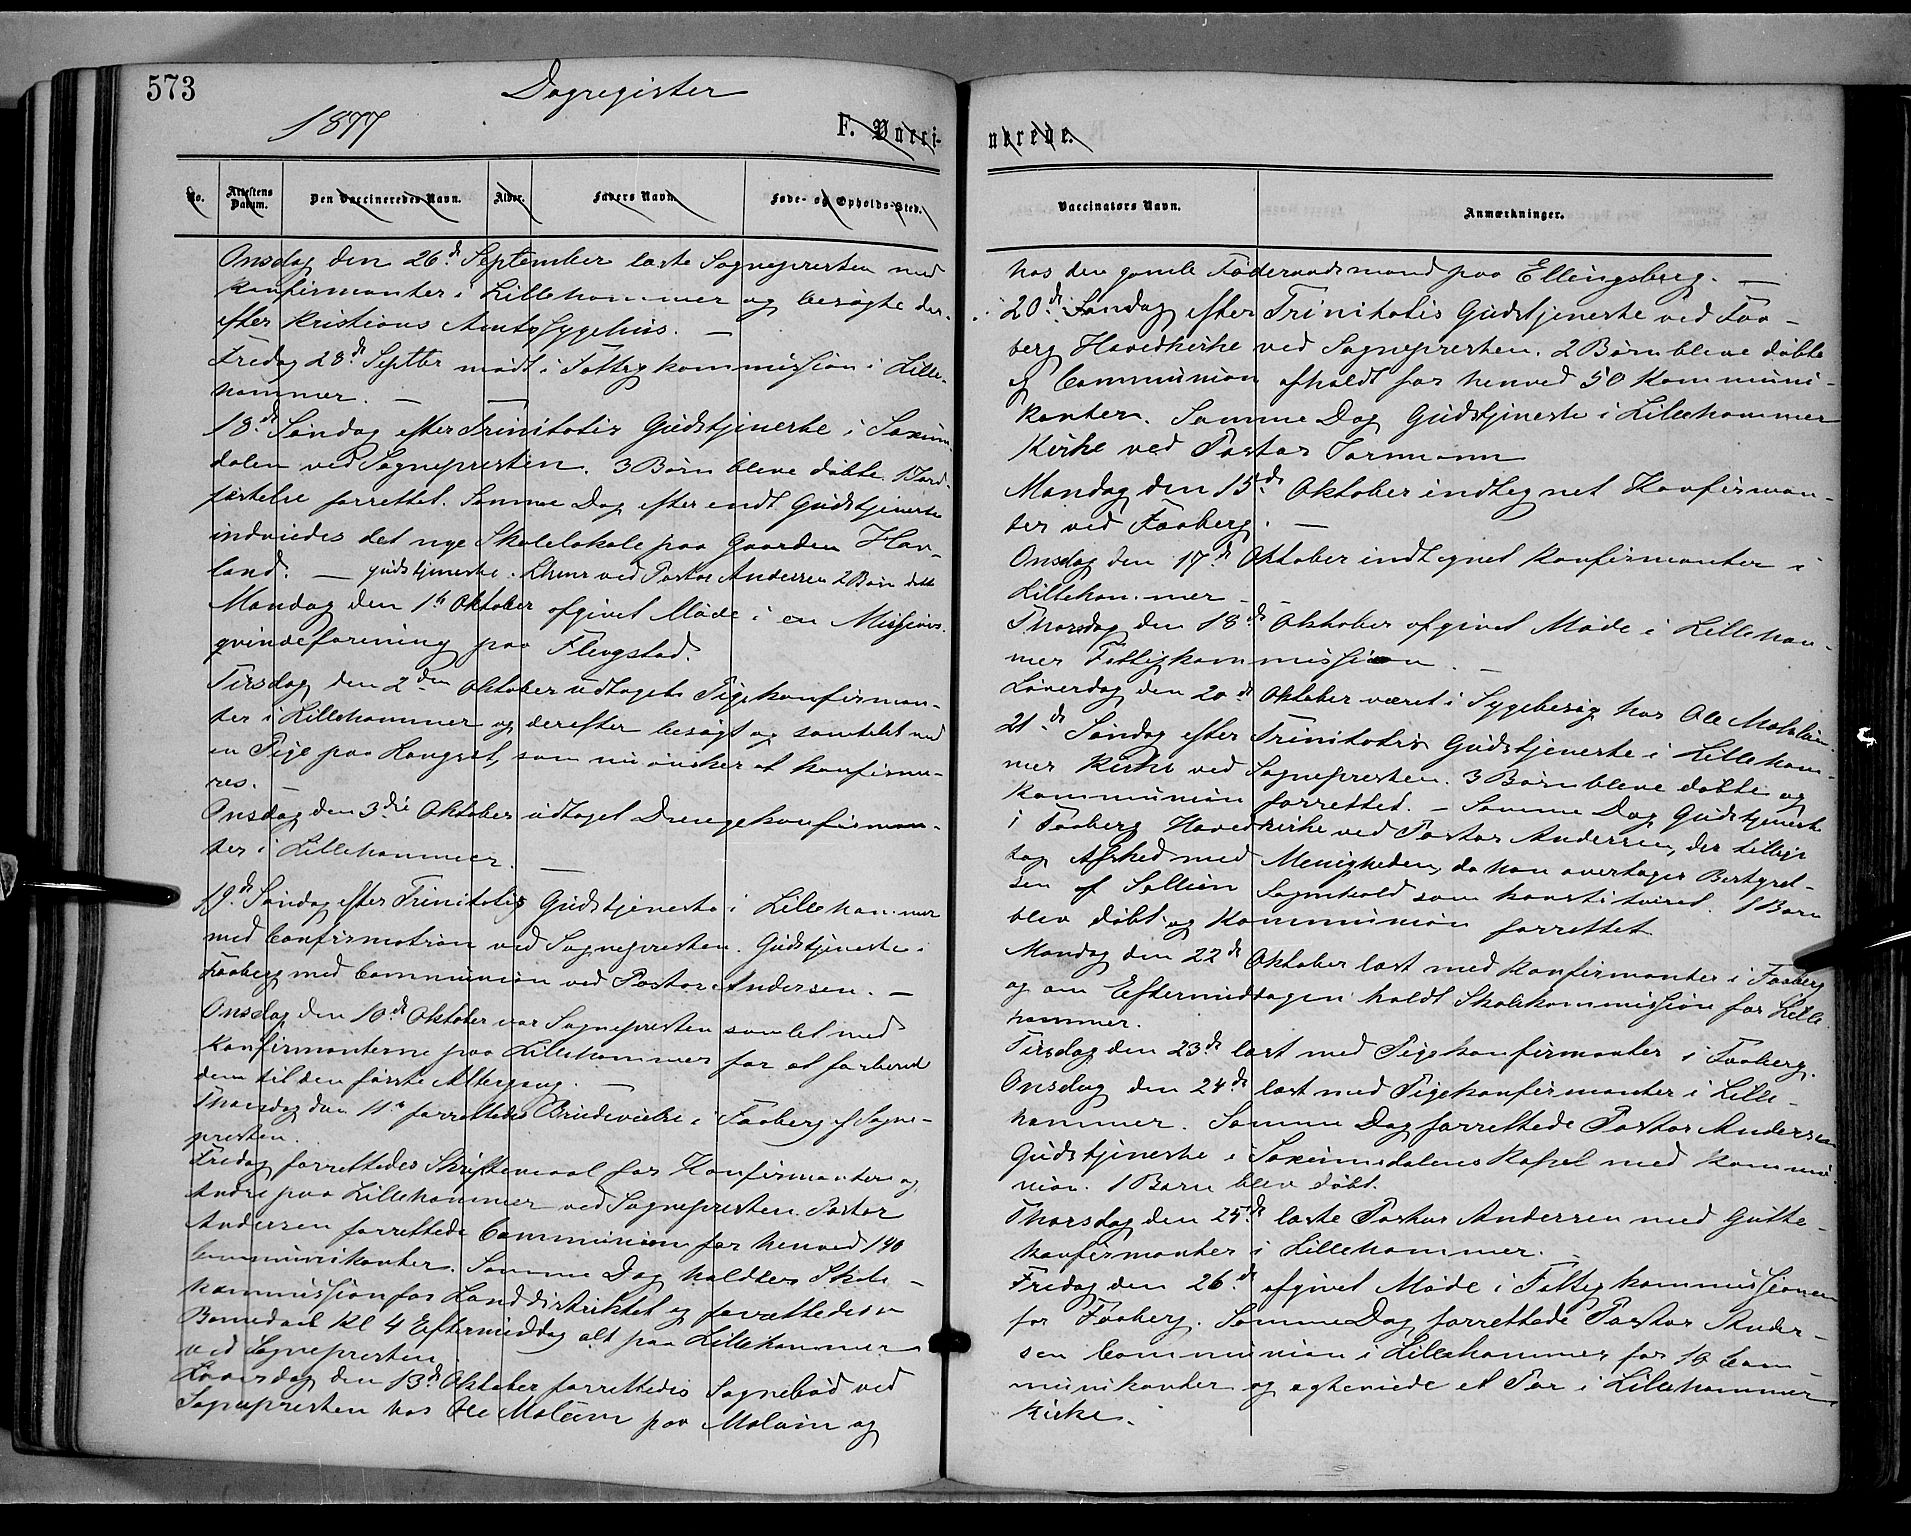 573
Dagregister
1877
F. Vacci-
nerede.
No.
Attestens Datum.
Den Vaccineredes Navn.
Alder.
Faders Navn.
Føde- og Opholds-Sted.
Vaccinators Navn.
Anmærkninger.
Onsdag den 26de September læste Sognepresten med
Konfirmanter i Lillehammer og besøgte der-
efter Kristians Amts Sygehus. —
Fredag 28de Septbr mødt i Fattigkommission i Lille-
hammer. — —
18de Søndag efter Trinitatis Gudstjeneste i Saxum-
dalen ved Sognepresten. 3 Børn bleve døbte. 1 Jord-
fæstelse forrettet. Samme Dag efter endt Gudstjeneste
indviedes det nye Skolelokale paa Gaarden Hav-
land. — Gudstjeneste i ved Pastor Andersen 2 Børn døbt
Mandag den 1ste Oktober afgivet Møde i en Missions-
qvindeforening paa Flugstad.
Tirsdag den 2den Oktober udtaget Pigekonfirman-
ter i Lillehammer og derefter besøgt og samtalt med
en Pige paa som nu ønsker at konfirme-
res. —
Onsdag den 3die Oktober udtaget Drengekonfirman-
ter i Lillehammer. —
19de Søndag efter Trinitatis Gudstjeneste i Lillehammer
med Confirmation ved Sognepresten. Gudstjeneste i
Faaberg med Communion ved Pastor Andersen. —
Onsdag den 10de Oktober var Sognepresten samlet med
Konfirmanterne paa Lillehammer for at forberede
dem til den første Altergang. —
Thorsdag den 11te forrettedes Brudevielse i Faaberg af Sogne-
presten.
Fredag forrettedes Skriftemaal for Konfirmanter og
Andre paa Lillehammer ved Sognepresten. Pastor
Andersen forrettede Communion for henved 140
Communikanter. Samme Dag holdtes Skole-
kommission for Landdistriktet og forrettedes en
Barnedaab Kl 4 Eftermiddag alt paa Lillehammer
ved Sognepresten.
Løverdag den 13de Oktober forrettedes Sognebud ved
Sognepresten hos Ole paa og
hos den gamle Føderaadsmand paa Ellingsberg. —
20de Søndag efter Trinitatis Gudstjeneste ved Faa-
berg Hovedkirke ved Sognepresten. 2 Børn bleve døbte
og Communion afholdt for henved 50 Kommuni-
kanter. Samme Dag Gudstjeneste i Lillehammer
Kirke ved Pastor Jormann
Mandag den 15de Oktober indtegnet Konfirman-
ter ved Faaberg. —
Onsdag den 17de Oktober indtegnet Konfirmanter i
Lillehammer —
Thorsdag den 18de Oktober afgivet Møde i Lilleham-
mer Fattigkommission. —
Løverdag den 20de Oktober været i Sygebesøg hos Ole
21de Søndag efter Trinitatis Gudstjeneste i Lilleham-
mer Kirke ved Sognepresten. 3 Børn bleve døbte og
Kommunion forrettet. — Samme Dag Gudstjeneste
i Faaberg Hovedkirke ved Pastor Andersen, der tillige
tog Afsked med Menigheden, da han overtager Bestyrel-
sen af Sollien Sognekald som konstitueret. 1 Barn
blev døbt og Kommunion forrettet
Mandag den 22de Oktober læst med Konfirmanter i Faaberg
og om Eftermiddagen holdt Skolekommission for Lille-
hammer.
Tirsdag den 23de læst med Pigekonfirmanter i Faaberg.
Onsdag den 24de læst med Pigekonfirmanter i Lille-
hammer. Samme Dag forrettede Pastor Andersen
Gudstjeneste i Saxumdalens Kapel med Kommu-
nion. 1 Barn blev døbt.
Thorsdag den 25de læste Pastor Andersen med Gutte-
konfirmanter i Lillehammer. —
Fredag den 26de afgivet Møde i Fattigkommissionen
for Faaberg. Samme Dag forrettede Pastor Ander-
sen Communion i Lillehammer for 10 Com-
munikanter og egteviede et Par i Lillehammer
Kirke.